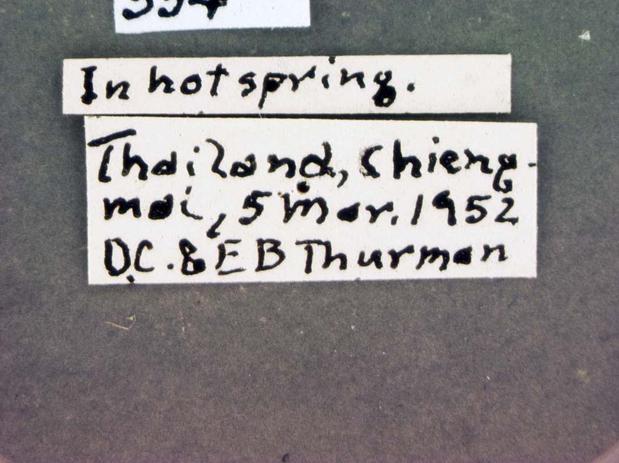 In hot spring.
Thailand, Chieng-
mai, 5 Mar. 1952
D.C. & E B Thurman